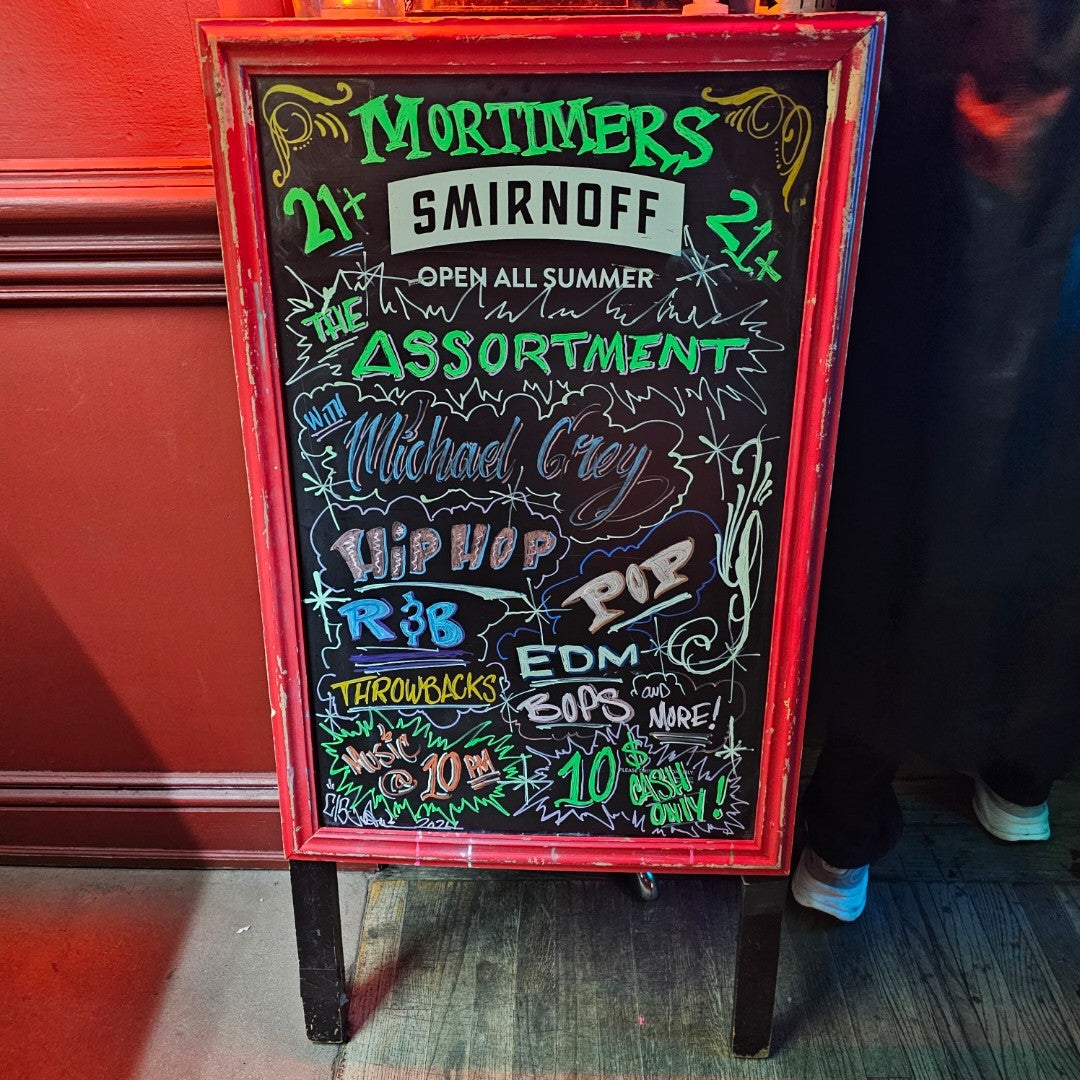 MORTIMERS
21+ SMIRNOFF 21+
OPEN ALL SUMMER
THE
ASSORTMENT
WITH
Michael Grey
HIP HOP
POP
R&B
EDM
THROWBACKS
BOPS
AND
MORE!
MUSiC
@ 10 PM
10$
CASH
ONLY!